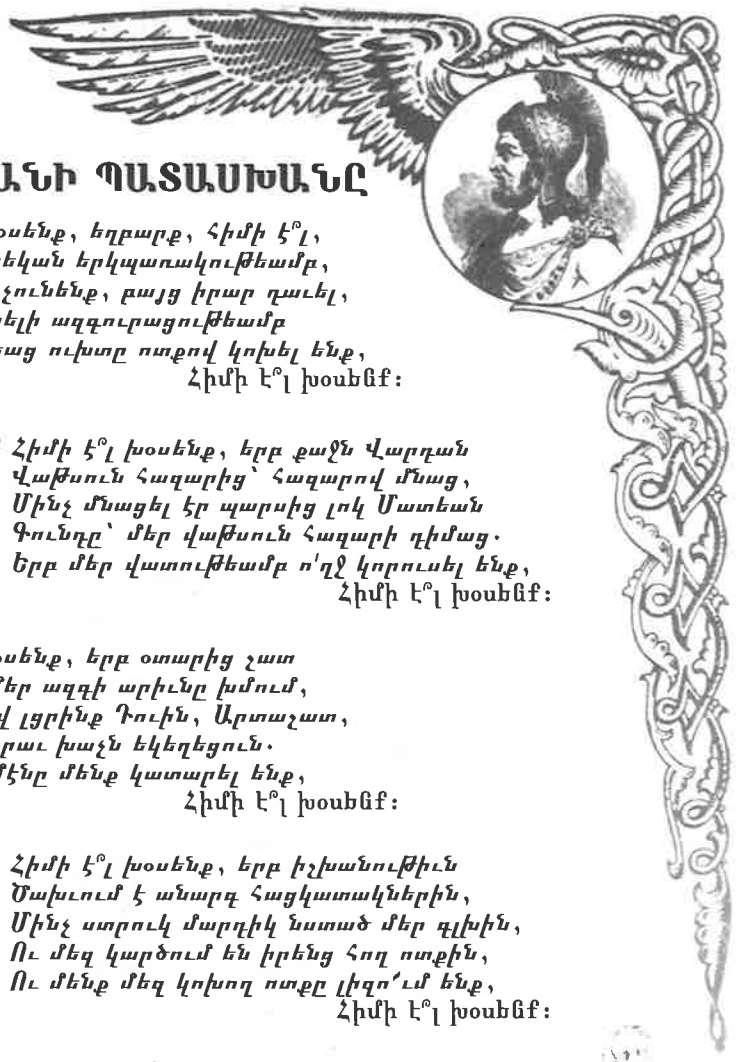 ԱՆԻ ՊԱՏԱՍԽԱՆԸ
օսենք, եղբարք, Հիմի է՞լ,
եկան երկպառակութեամբ,
չունենք, բայց իրար դաւել,
ելի ազգուրացութեամբ
եաց ուխտը ոտքով կոխել ենք,
Հիմի է՞լ խօսենք։
Հիմի է՞լ խօսենք, երբ քաջն Վարդան
Վաթսուն հազարից՝ հազարով մնաց,
Մինչ մնացել էր պարսից լոկ Մատեան
Գունդը՝ մեր վաթսուն հազարի դիմաց.
Երբ մեր վատութեամբ ո՛ղջ կորուսել ենք,
Հիմի է՞լ խօսենք։
օսենք, երբ օտարից շատ
մեր ազգի արիւնը խմում,
վ լցրինք Դուին, Արտաշատ,
րաւ խաչն եկեղեցուն.
մէնը մենք կատարել ենք,
Հիմի է՞լ խօսենք։
Հիմի է՞լ խօսենք, երբ իշխանութիւն
Ծախւում է անարգ հացկատակներին,
Մինչ ստրուկ մարդիկ նստած մեր գլխին,
Ու մեզ կարծում են իրենց հող ոտքին,
Ու մենք մեզ կոխող ոտքը լիզո՜ւմ ենք,
Հիմի է՞լ խօսենք։